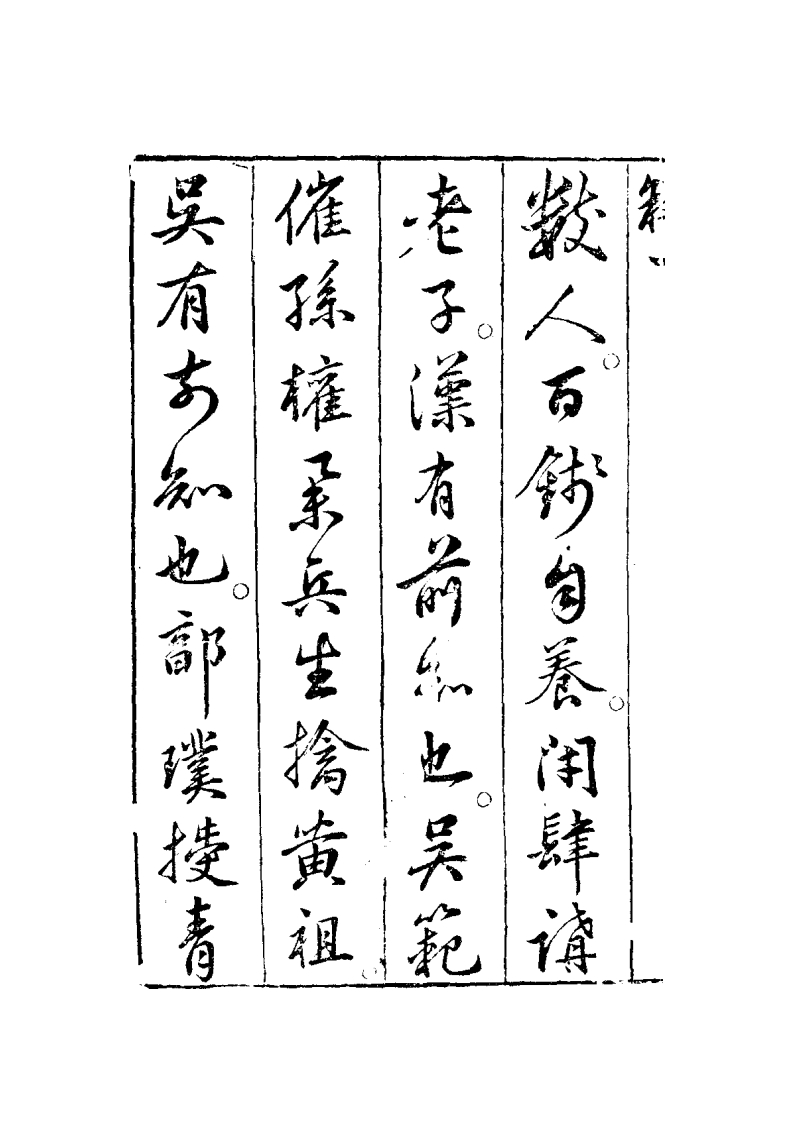 數人。百錢自養。閉肆講
老子。漢有前知也。吳範
催孫權柔兵生擒黃祖。
吳有前知也。郭璞授青